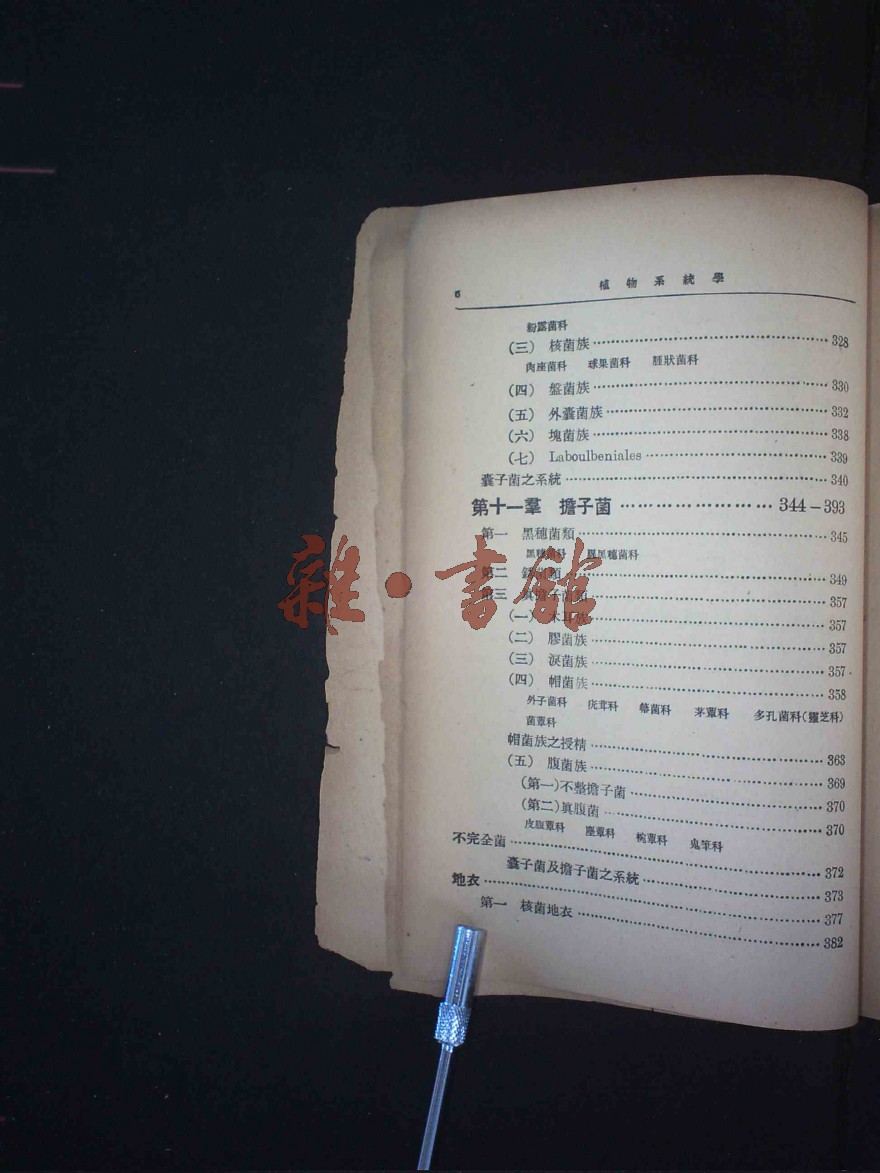 6 植物系統學
粉露菌科
(三) 核菌族 328
肉座菌科 球果菌科 腫狀菌科
(四) 盤菌族 330
(五) 外囊菌族 332
(六) 塊菌族 338
(七) Laboulbeniales 339
囊子菌之系統 340
第十一羣 擔子菌 344-393
第一 黑穗菌類 345
黑穗菌科 腥黑穗菌科
第二 銹菌類 349
第三 眞擔子菌類 357
(一) 木耳族 357
(二) 膠菌族 357
(三) 淚菌族 357
(四) 帽菌族 358
外子菌科 疣茸科 箒菌科 茅蕈科 多孔菌科(靈芝科)
菌蕈科
帽菌族之授精 363
(五) 腹菌族 369
(第一)不整擔子菌 370
(第二)眞腹菌 370
皮腹蕈科 塵蕈科 椀蕈科 鬼筆科
不完全菌 372
囊子菌及擔子菌之系統 373
地衣 377
第一 核菌地衣 382
雜·書館